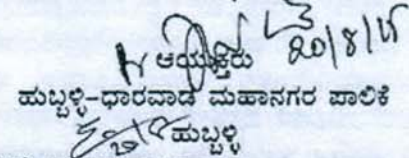 20/8/15
ಆಯುಕ್ತರು
ಹುಬ್ಬಳ್ಳಿ-ಧಾರವಾಡ ಮಹಾನಗರ ಪಾಲಿಕೆ
ಹುಬ್ಬಳ್ಳಿ